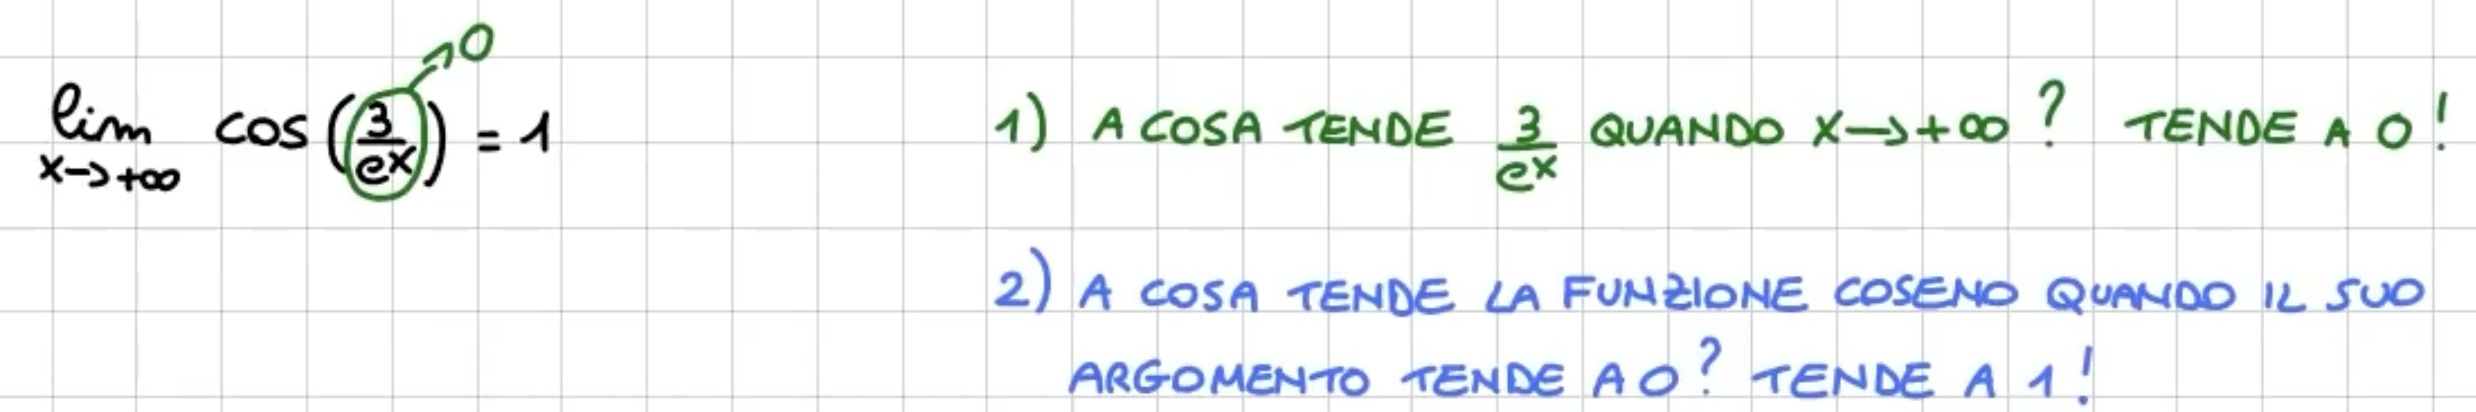 lim x→+∞ cos(3/e^x) = 1 →0
1) A COSA TENDE 3/e^x QUANDO X→+∞? TENDE A 0!
2) A COSA TENDE LA FUNZIONE COSENO QUANDO IL SUO
ARGOMENTO TENDE A 0? TENDE A 1!